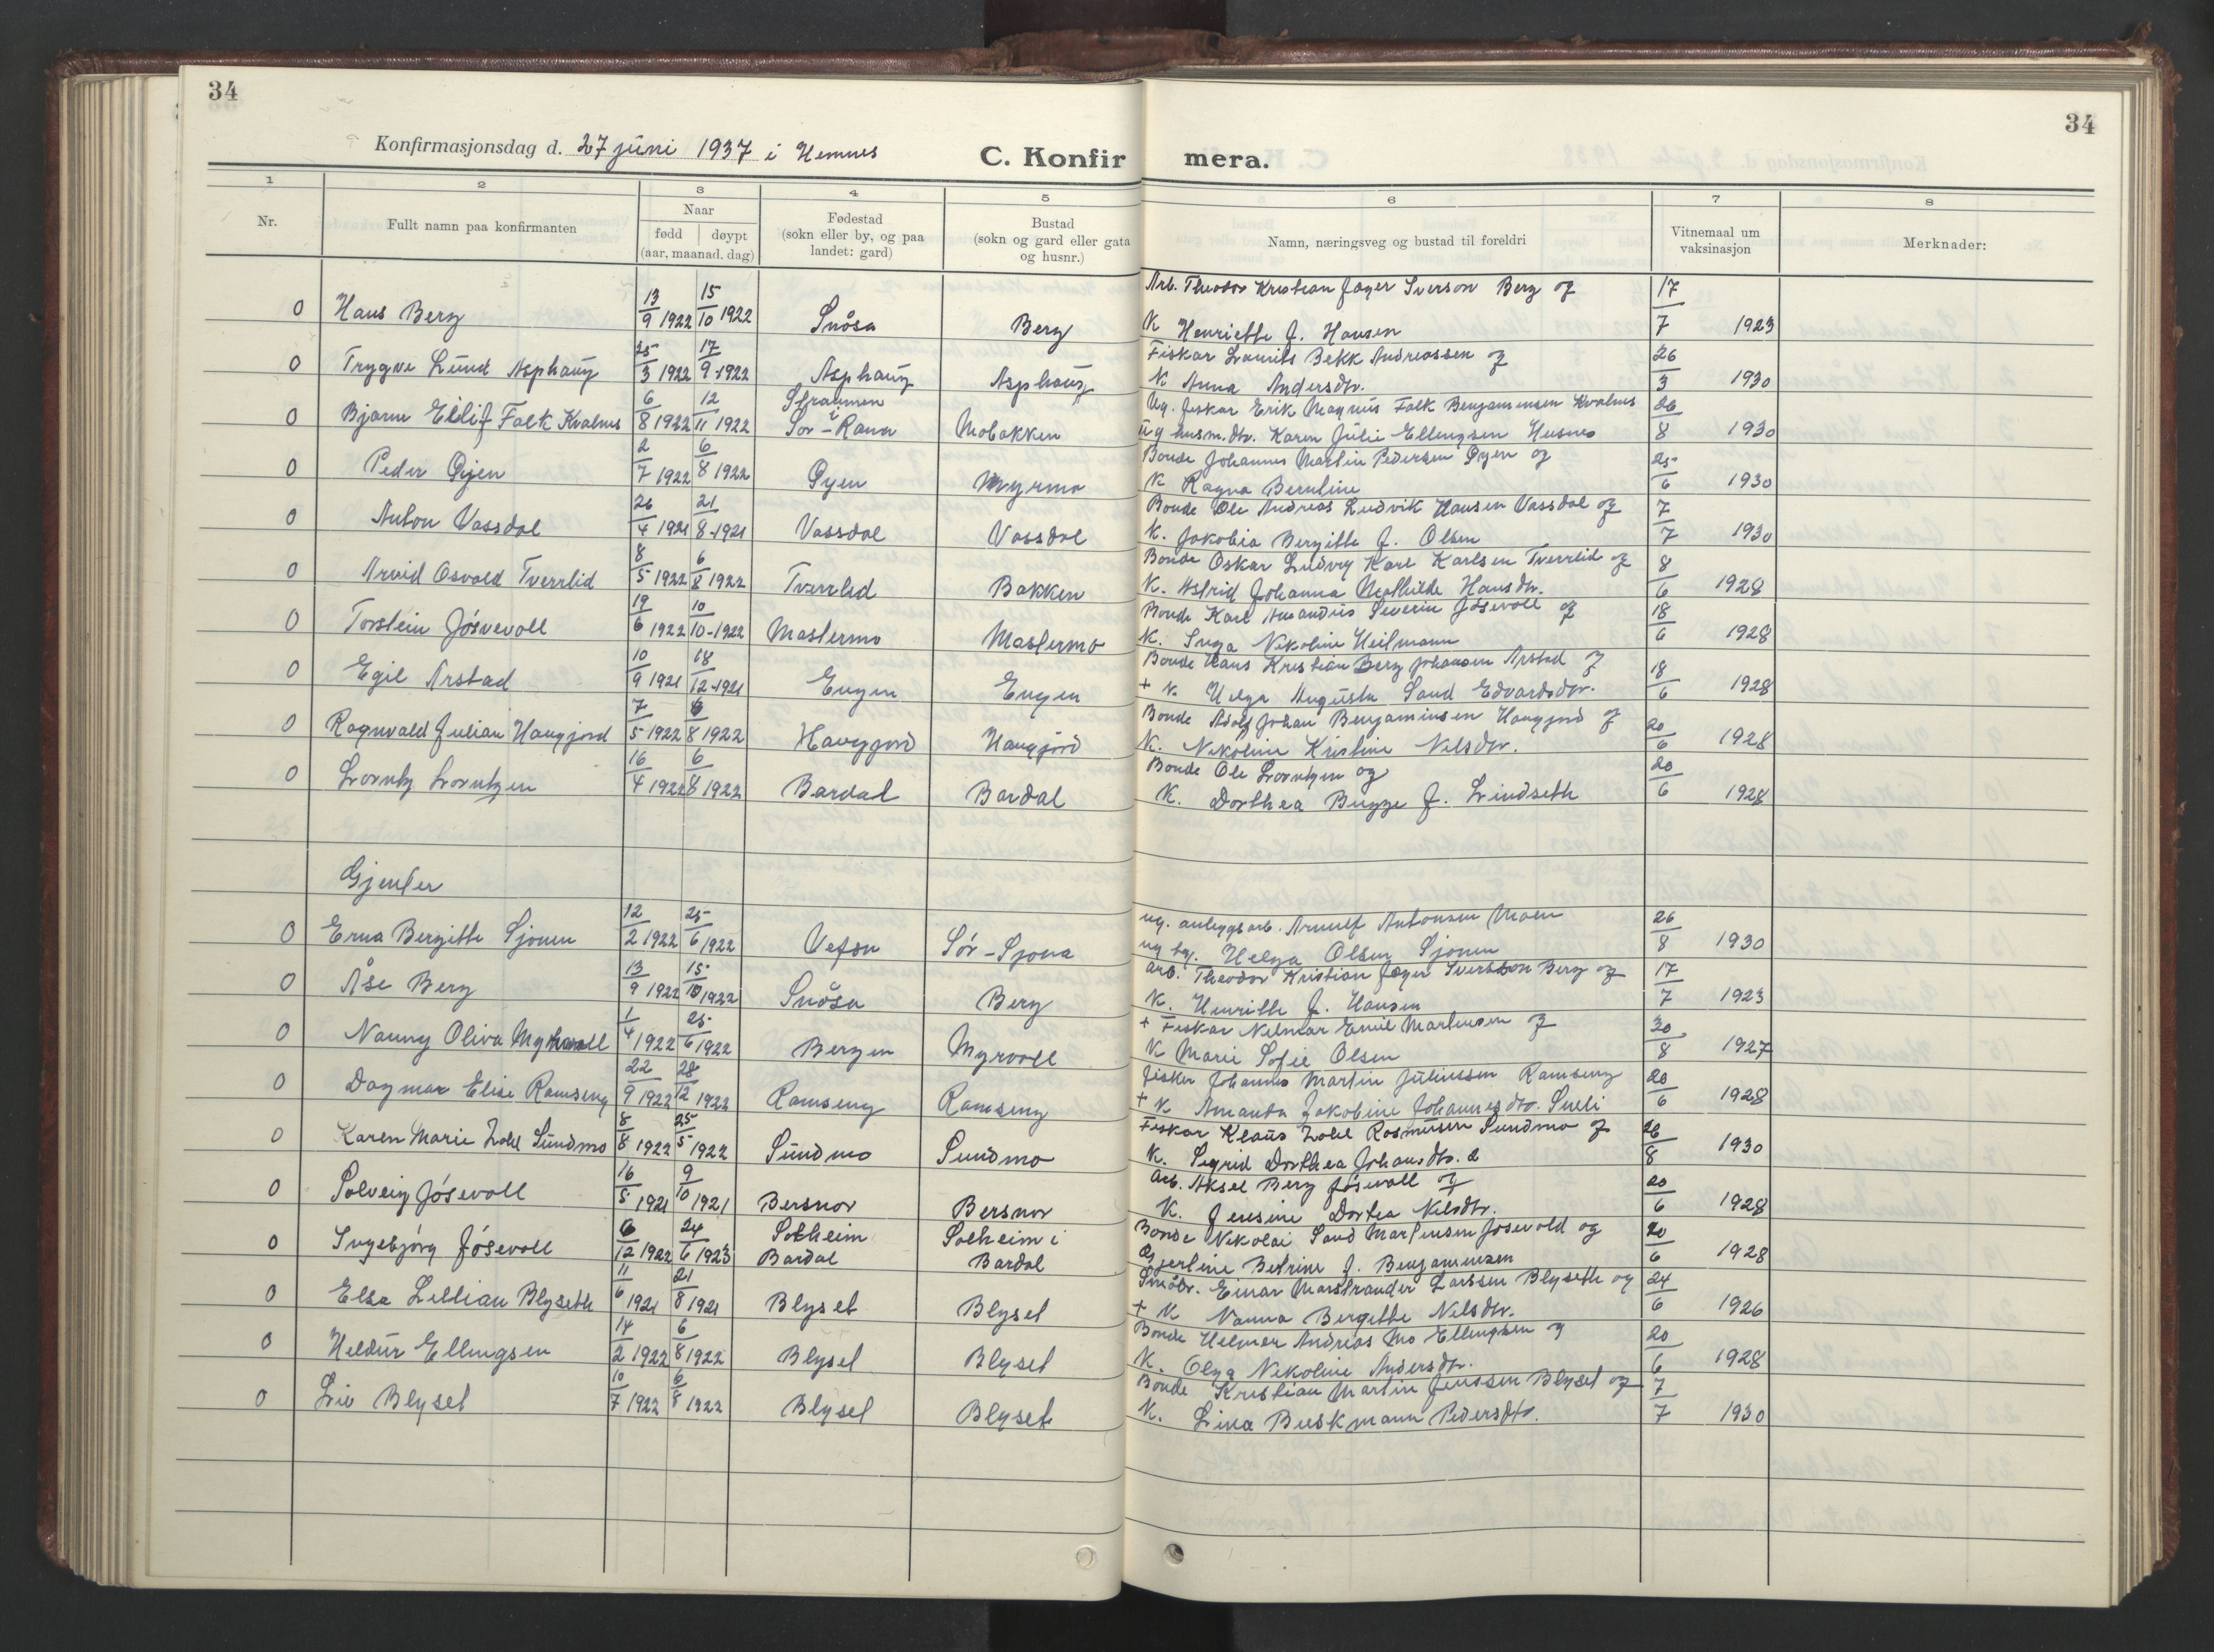 34
34
Konfirmasjonsdag d. 27 juni 1937 i Hemnes
C. Konfir mera.
1 2 3 4 5 6 7 8
Nr. Fullt namn paa konfirmanten Naar fødd døypt (aar, maanad. dag) Fødestad (sokn eller by, og paa landet: gard) Bustad (sokn og gard eller gata og husnr.) Namn, næringsveg og bustad til foreldri Vitnemaal um vaksinasjon Merknader:
0 Hans Berg 13/9 1922 15/10 1922 Snåsa Berg Arb. Theodor Kristian Jager Iverson Berg og 17/7 1923
K Henriette f. Hansen
0 Trygve Lund Asphaug 25/3 1922 17/9 1922 Asphaug Asphaug Fiskar Laurits Bekk Andreassen og 26/3 1930
K Anna Andersdtr.
0 Bjarne Eilif Falk Kvalnes 6/8 1922 12/11 1922 Straumen i Sør-Rana Mobakken Ug. fiskar Erik Magnus Falk Benjaminsen Kvalnes 26/8 1930
ug husm.dtr. Karen Julie Ellingsen Husnes
0 Peder Øyen 2/7 1922 6/8 1922 Øyen Myrmo Bonde Johannes Martin Pedersen Øyen og 25/6 1930
K Ragna Berntine
0 Anton Vassdal 26/4 1921 21/8 1921 Vassdal Vassdal Bonde Ole Andreas Ludvik Hansen Vassdal og 7/7 1930
K. Jakobia Bergitte f. Olsen
0 Arvid Osvald Tverrlid 8/5 1922 6/8 1922 Tverrlid Bakken Bonde Oskar Ludvig Karl Karlsen Tverrlid og 8/6 1928
K. Astrid Johanna Mathilde Hansdtr.
0 Torstein Jøsvevoll 19/6 1922 10/10-1922 Mastermo Mastermo Bonde Karl Amandus Severin Jøsevoll og 18/6 1928
K. Inga Nikoline Heilmann
0 Egil Arstad 10/9 1921 18/12 1921 Engen Engen Bonde Hans Kristian Berg Johansen Arstad og 18/6 1928
+ K Helga Augusta Sand Edvardsdtr.
0 Ragnvald Julian Haugjord 7/5 1922 6/8 1922 Haugjord Haugjord Bonde Adolf Johan Benjaminsen Haugjord og 20/6 1928
K. Nikoline Kristine Nilsdtr.
0 Lorntz Lorntzen 16/4 1922 6/8 1922 Bardal Bardal Bonde Ole Lorntzen og 20/6 1928
K. Dorthea Bugge f. Lindseth
Gjenter
0 Erna Bergitte Sjonen 12/2 1922 25/6 1922 Vefsn Sør-Sjona ug. anleggsarb. Arnulf Antonsen Moen 26/8 1930
ug Helga Olsen Sjonen
0 Åse Berg 13/9 1922 15/10 1922 Snåsa Berg Arb. Theodor Kristian Jager Iversson Berg og 17/7 1923
K. Henritte f. Hansen
0 Nanny Oliva Myrvoll 1/4 1922 25/6 1922 Bergen Myrvoll + Fiskar Nilmar Emil Martinsen og 30/8 1927
K Marie Sofie Olsen
0 Dagmar Elise Ramseng 22/9 1922 28/12 1922 Ramseng Ramseng fisker Johannes Martin Juliussen Ramseng 20/6 1928
+ K Amanda Jakobine Johannesdtr. Sneli
0 Karen Marie Zahl Sundmo 8/8 1922 25/5 1922 Sundmo Sundmo Fiskar Klaus Zahl Rasmussen Sundmo og 26/8 1930
K. Sigrid Dorthea Johansdtr.
0 Solveig Jøsevoll 16/5 1921 9/10 1921 Bersnor Bersnor Arb. Aksel Berg Jøsevoll og 20/6 1928
K. Jensine Dortea Nilsdtr.
0 Ingebjørg Jøsevoll 6/12 1922 24/6 1923 Solheim Bardal Solheim i Bardal Bonde Nikolai Sand Martinsen Jøsevold og 20/6 1928
Gjertine Betrine f. Benjaminsen
0 Elsa Lillian Blyseth 11/6 1921 21/8 1921 Blyset Blyset Småbr. Einar Marstrander Larssen Blyseth og 24/6 1926
+ K Nanna Bergitte Nilsdtr.
0 Heldur Ellingsen 14/2 1922 6/8 1922 Blyset Blyset Bonde Helmer Andreas Mo Ellingsen og 20/6 1928
K. Olga Nikoline Andersdtr.
0 Liv Blyset 10/7 1922 6/8 1922 Blyset Blyset Bonde Kristian Martin Jenssen Blyset og 7/7 1930
K. Lina Buskmann Pedersdtr.